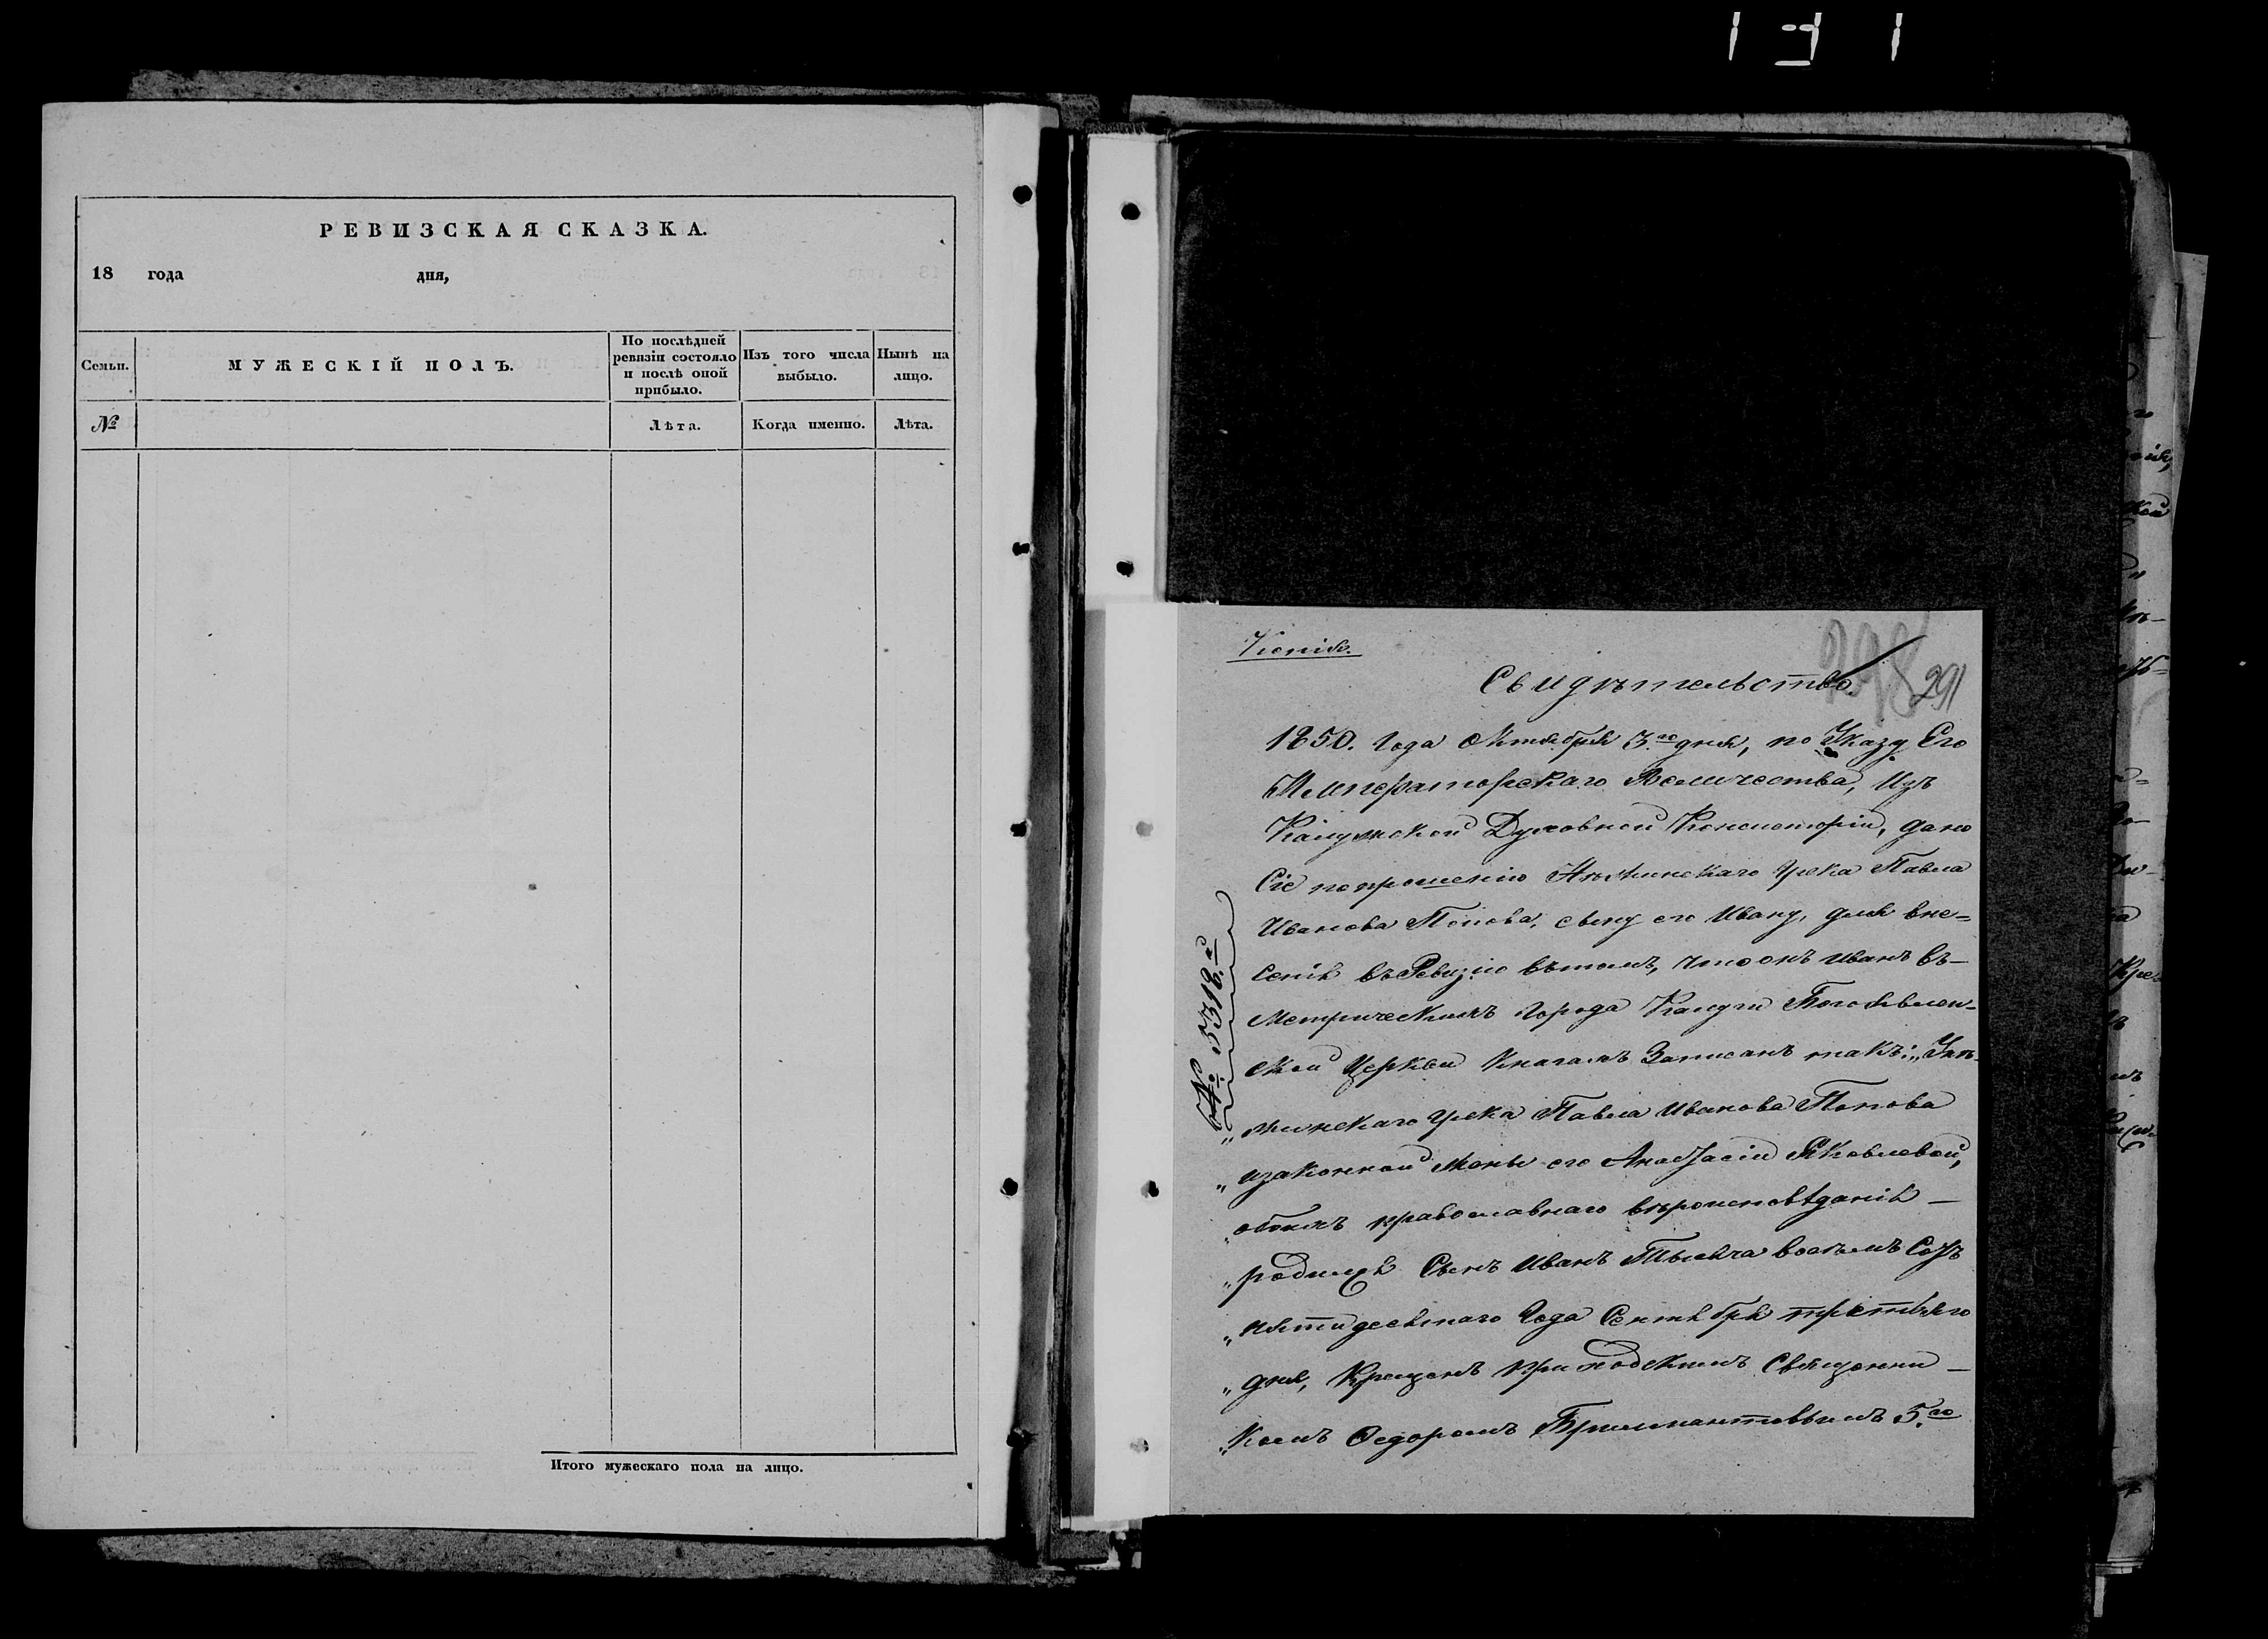 РЕВИЗСКАЯ СКАЗКА.
18 года дня,
Семьи.
МУЖЕСКІЙ ПОЛЪ.
По послѣдней
ревизіи состояло
и послѣ оной
прибыло.
Изъ того числа
выбыло.
Нынѣ на
лицо.
№
Лѣта.
Когда именно.
Лѣта.
Итого мужескаго пола на лицо.
Копія.
Свидѣтельство.
298
291
1850. Года Октября 3го дня, по Указу Его
Императорскаго Величества, Изъ
Калужской Духовной Консисторіи, дано
Сіе по прошенію Нѣжинскаго Грека Павла
Иванова Попова, сыну его Ивану, для вне=
сенія въ Ревизію въ томъ, что онъ Иванъ въ-
Метрическихъ Города Калуги Богоявлен-
ской Церкви Книгахъ Записанъ такъ: „Нѣ-
„жинскаго Грека Павла Иванова Попова
„и законной жены его Анастасіи Яковлевой,
„обоихъ православнаго вѣроисповѣданія —
„родился Сынъ Иванъ Тысяча восемь Сотъ
„пятидесятаго Года Сентября третьяго
„дня, Крещенъ приходскимъ Священни —
„комъ Федоромъ Бриллиантовымъ 5.го
№. 5318.й